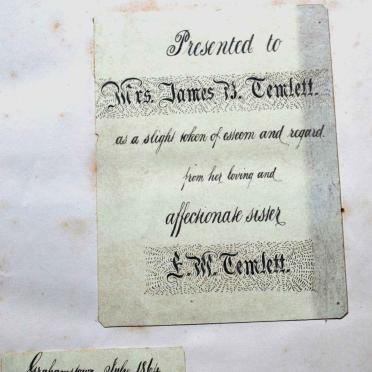 Presented to
Mrs. James B. Temlett.
as a slight token of esteem and regard.
from her loving and
affectionate sister
E. M. Temlett.
Grahamstown July 1864